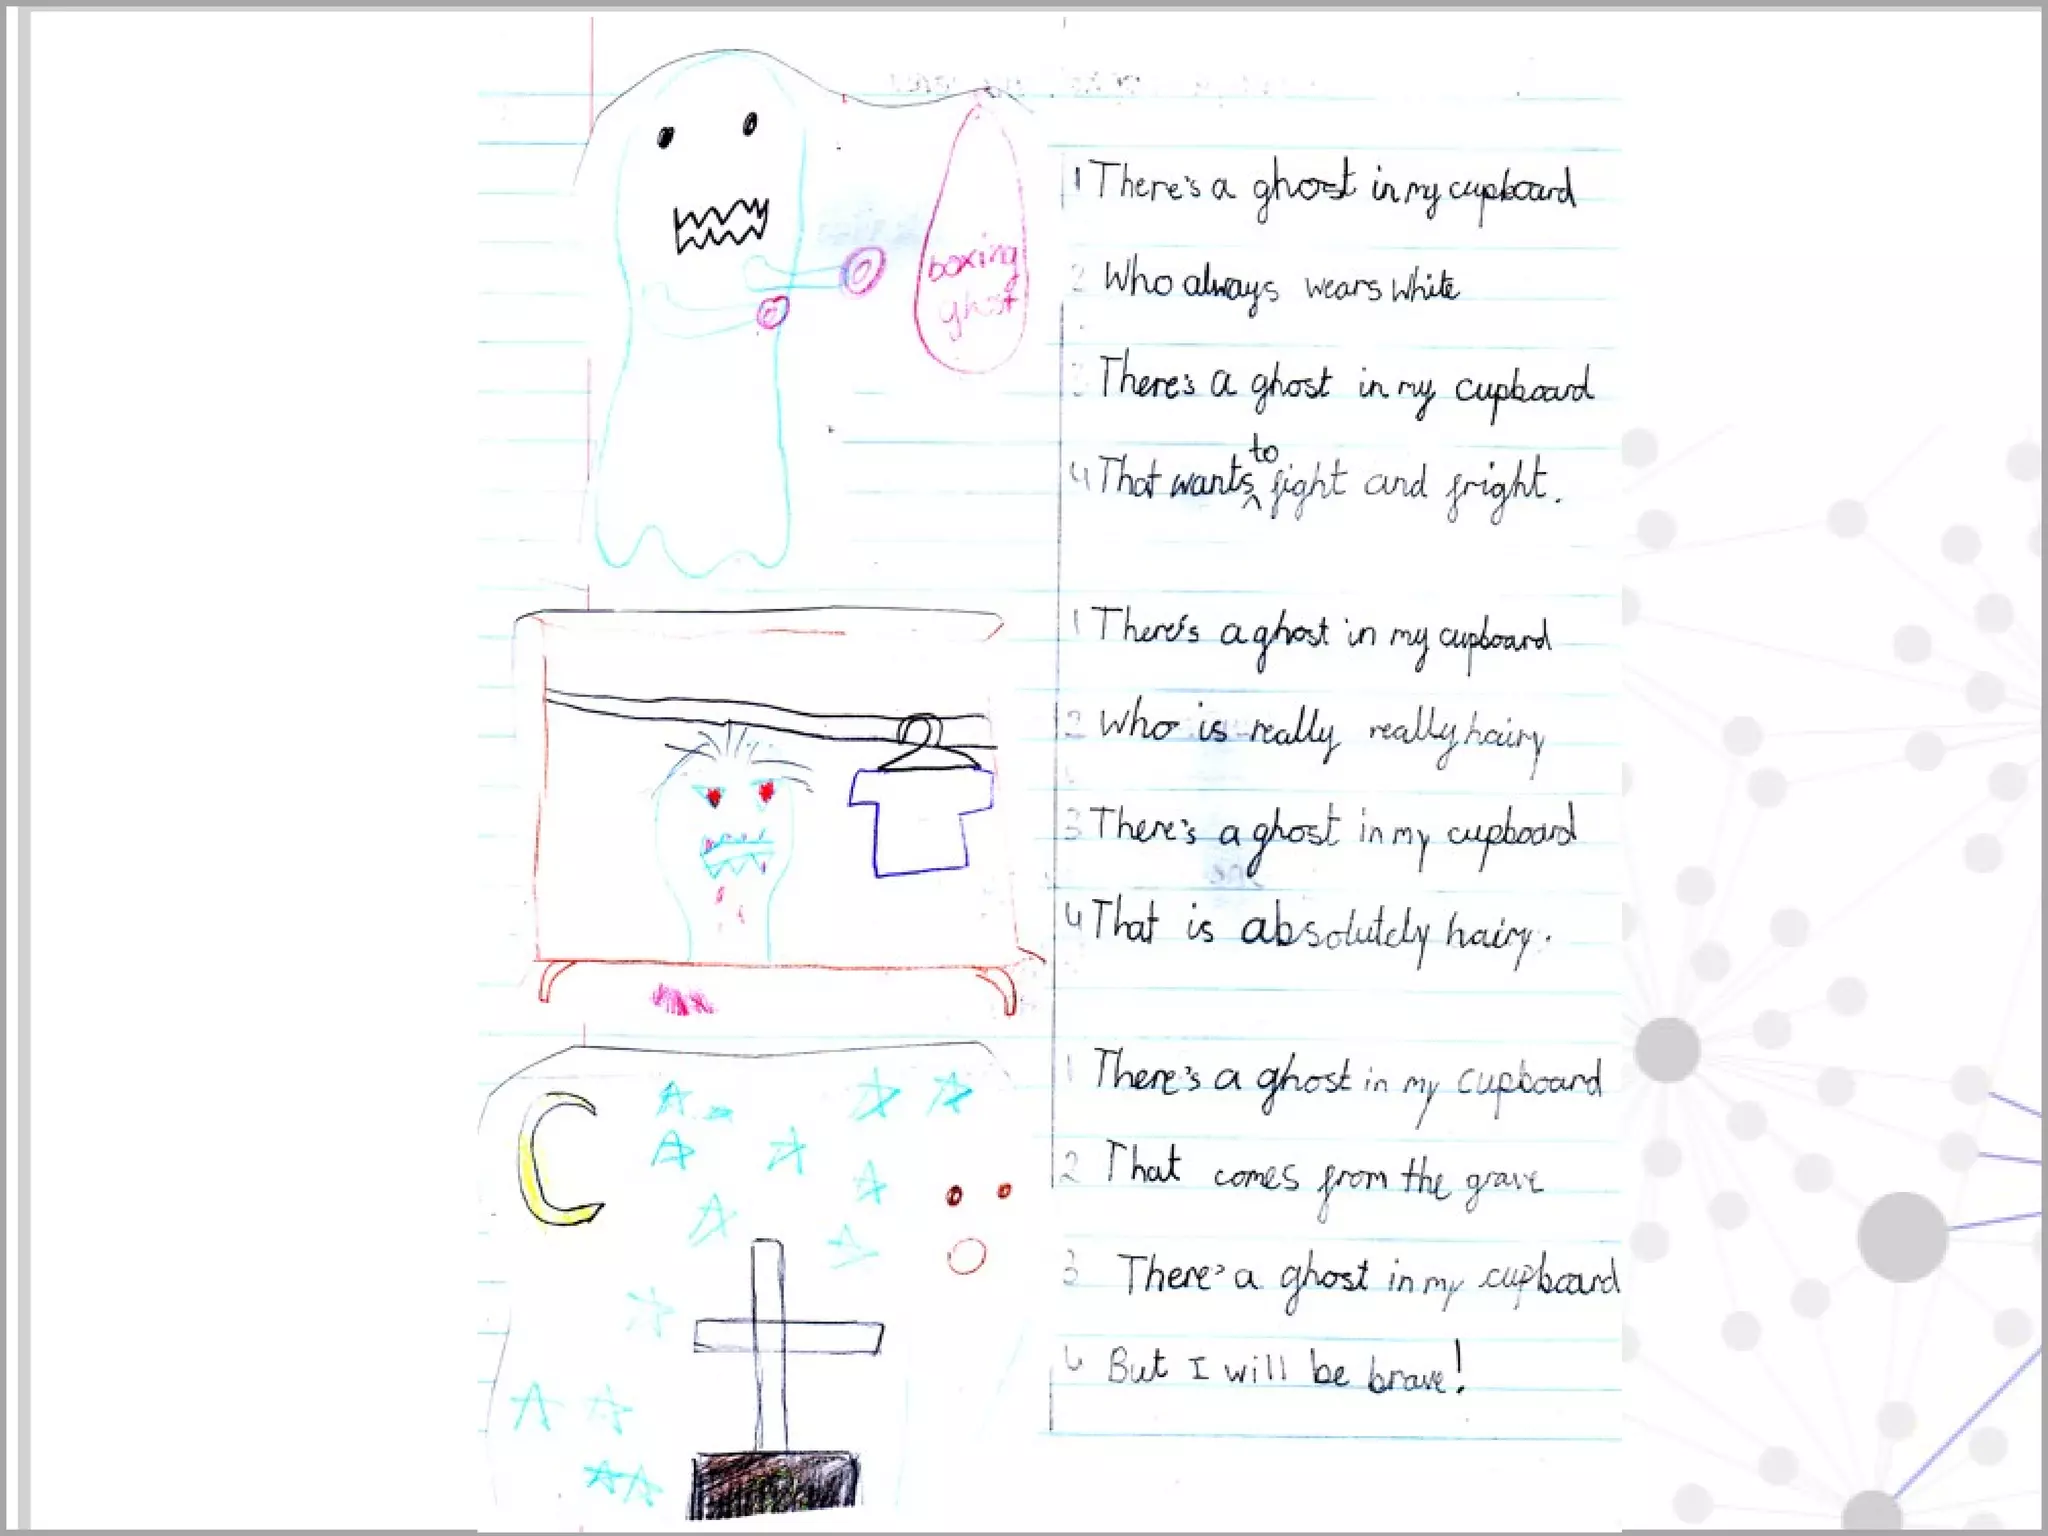 boxing
ghost
1 There's a ghost in my cupboard
2 Who always wears white
3 There's a ghost in my cupboard
4 That wants to fight and fright.
1 There's a ghost in my cupboard
2 Who is really really hairy
3 There's a ghost in my cupboard
4 That is absolutely hairy.
1 There's a ghost in my cupboard
2 That comes from the grave
3 There's a ghost in my cupboard
4 But I will be brave!